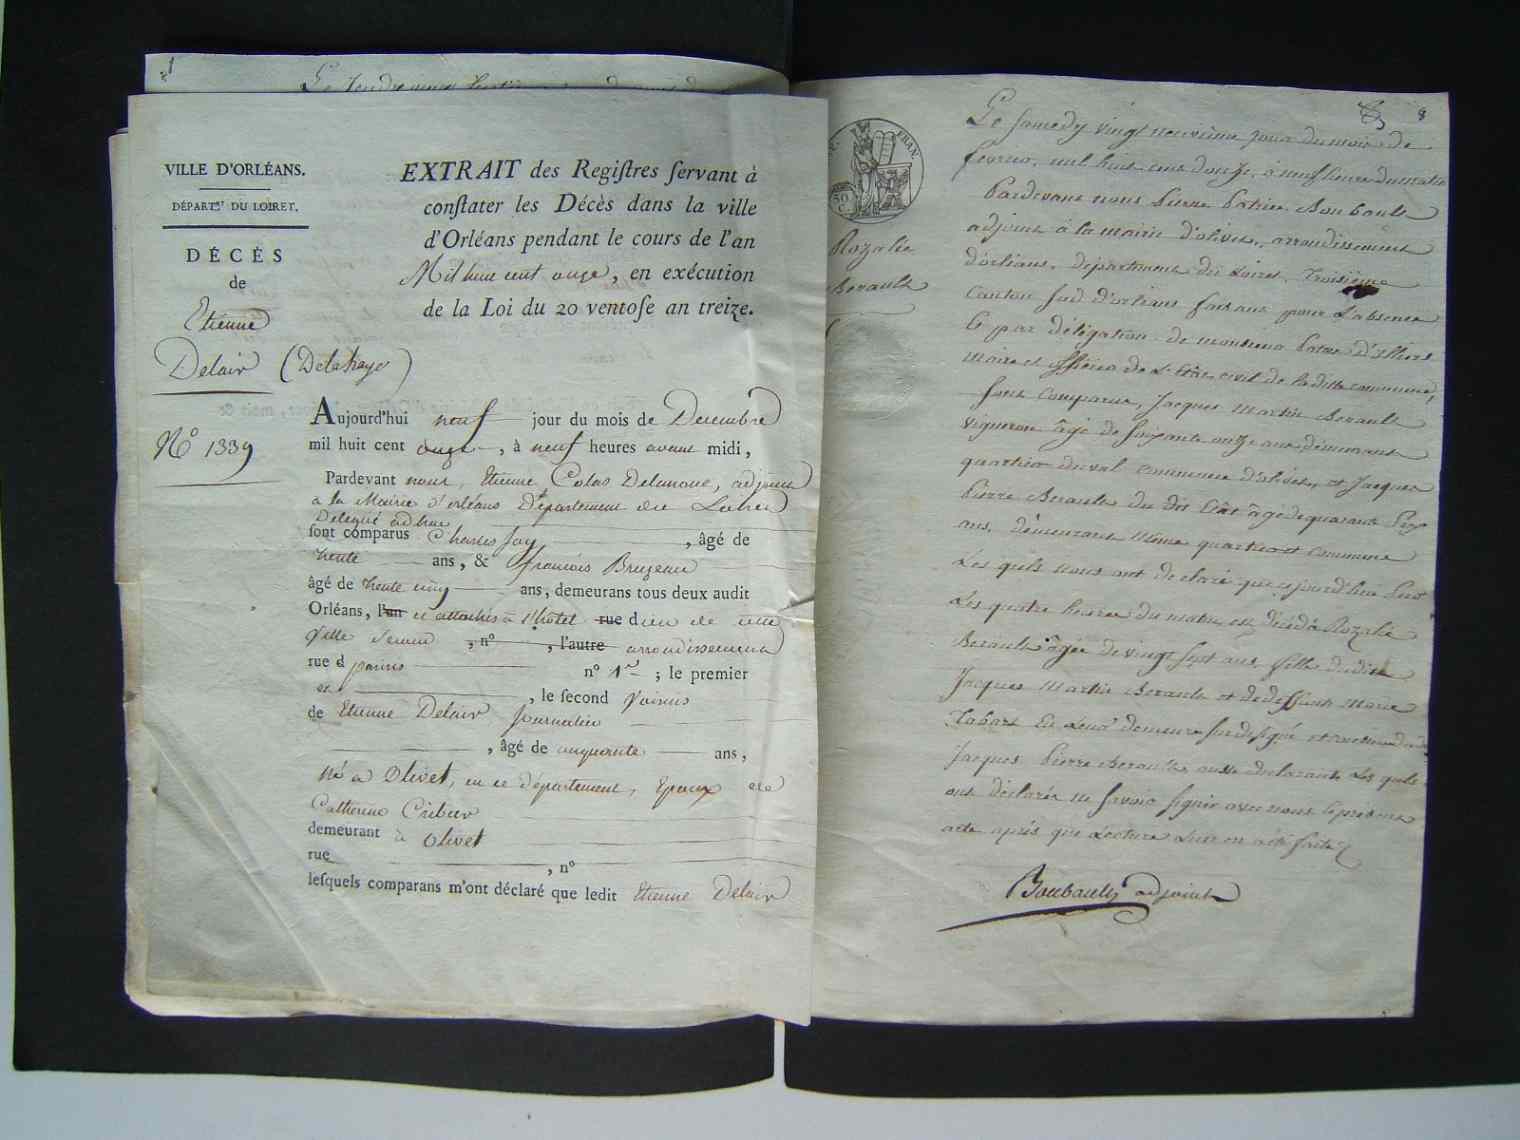 VILLE D'ORLÉANS.
DÉPARTt. DU LOIRET.
DÉCÈS
de
Etienne
Delair (Delahaye)
N° 1339
EXTRAIT des Regiſtres ſervant à
conſtater les Décès dans la ville
d'Orléans pendant le cours de l'an
Mil huit cent onze, en exécution
de la Loi du 20 ventoſe an treize.
Aujourd'hui neuf jour du mois de Decembre
mil huit cent onze, à neuf heures avant midi,
Pardevant nous, Etienne Colas Delanoue, adjoint
a la Mairie d'orléans Département du Loiret
Delegué ad hoc
ſont comparus Charles Jay, âgé de
trente ans, & francois Bruzeau
âgé de trente cinq ans, demeurans tous deux audit
Orléans, l'un et attachés à l'hotel rue dieu de cette
Ville , n° , l'autre arrondissement
rue d parvis n° 1er ; le premier
et , le ſecond Voisins
de Etienne Delair Journalier
, âgé de cinquante ans,
Né a Olivet, en ce département, Epoux de
Catherine Cribier
demeurant à Olivet
rue , n°
leſquels comparans m'ont déclaré que ledit Etienne Delair
FRAN.
50
C.
Rozalie
Berault
8
Le samedy vingt neuvieme jour du mois de
fevrier, mil huit cent douze, à neuf heure du matin
Pardevant nous Pierre Patrice Boubault
adjoint à la mairie d'olivet, arrondissement
d'orléans, département du Loiret, troisieme
Canton sud d'orléans faisant pour l'absence
le par délégation de monsieur
maire et officier de l'Etat civil de laditte commune,
sont comparus, Jacques Martin Berault
vigneron âgé de soixante onze ans demeurant
quartier du val commune d'olivet, et Jacques
Pierre Berault du dit Etat âgé de quarante
ans, demeurant même quartier et commune
Les quels nous ont declaré que cejourd'hui
Les quatre heures du matin est décédé Rozalie
Berault âgée de vingt sept ans fille dudit
Jacques Martin Berault et de deffunte Marie
Tabart
Jacques Pierre Berault aussi declarant Les quels
ont déclarés ne savoir signer avec nous le present
acte après que Lecture Leur en a été faite
Boubault adjoint